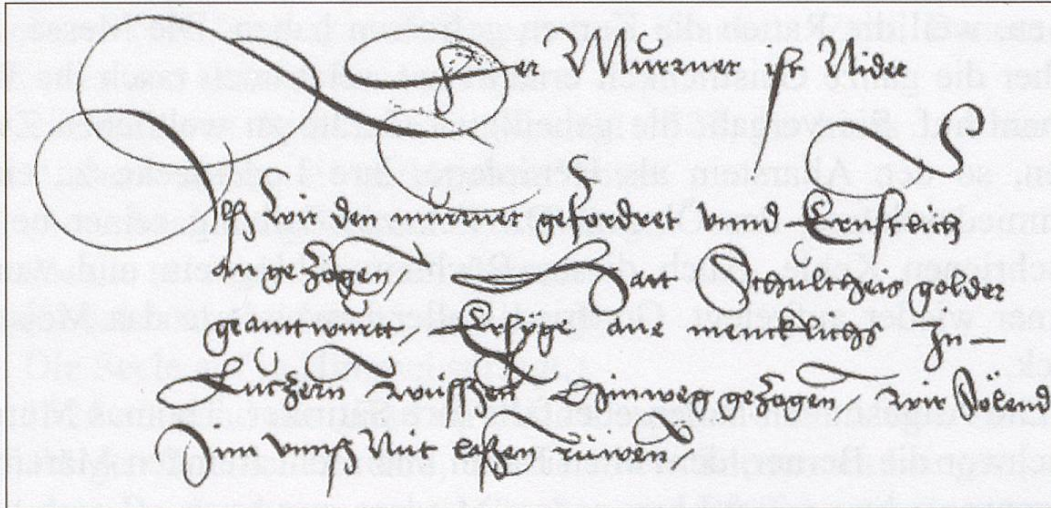 Der Murrner ist Nider
Als wir den murner gefordret vnnd Ernstlich
angezogen, Hatt Schultheis golder
geantwurt, Er syge ane mencklichs zu
Lutzern wüssen Hinweg gezogen, wir sölend
Inn vnns Nit lassen rüwen